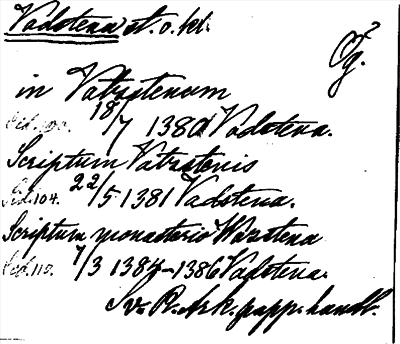 Vadstena st. o. kl.
Ög.
in Vatzstenum
Sid. 100. 18/7 1380 Vadstena.
Scriptum Vatzstenis
Sid. 104. 22/5 1381 Vadstena.
Scriptum monasterio Wazstena
Sid. 110. 7/3 1384-1386 Vadstena.
Sv. R. Ark. papp. handl.